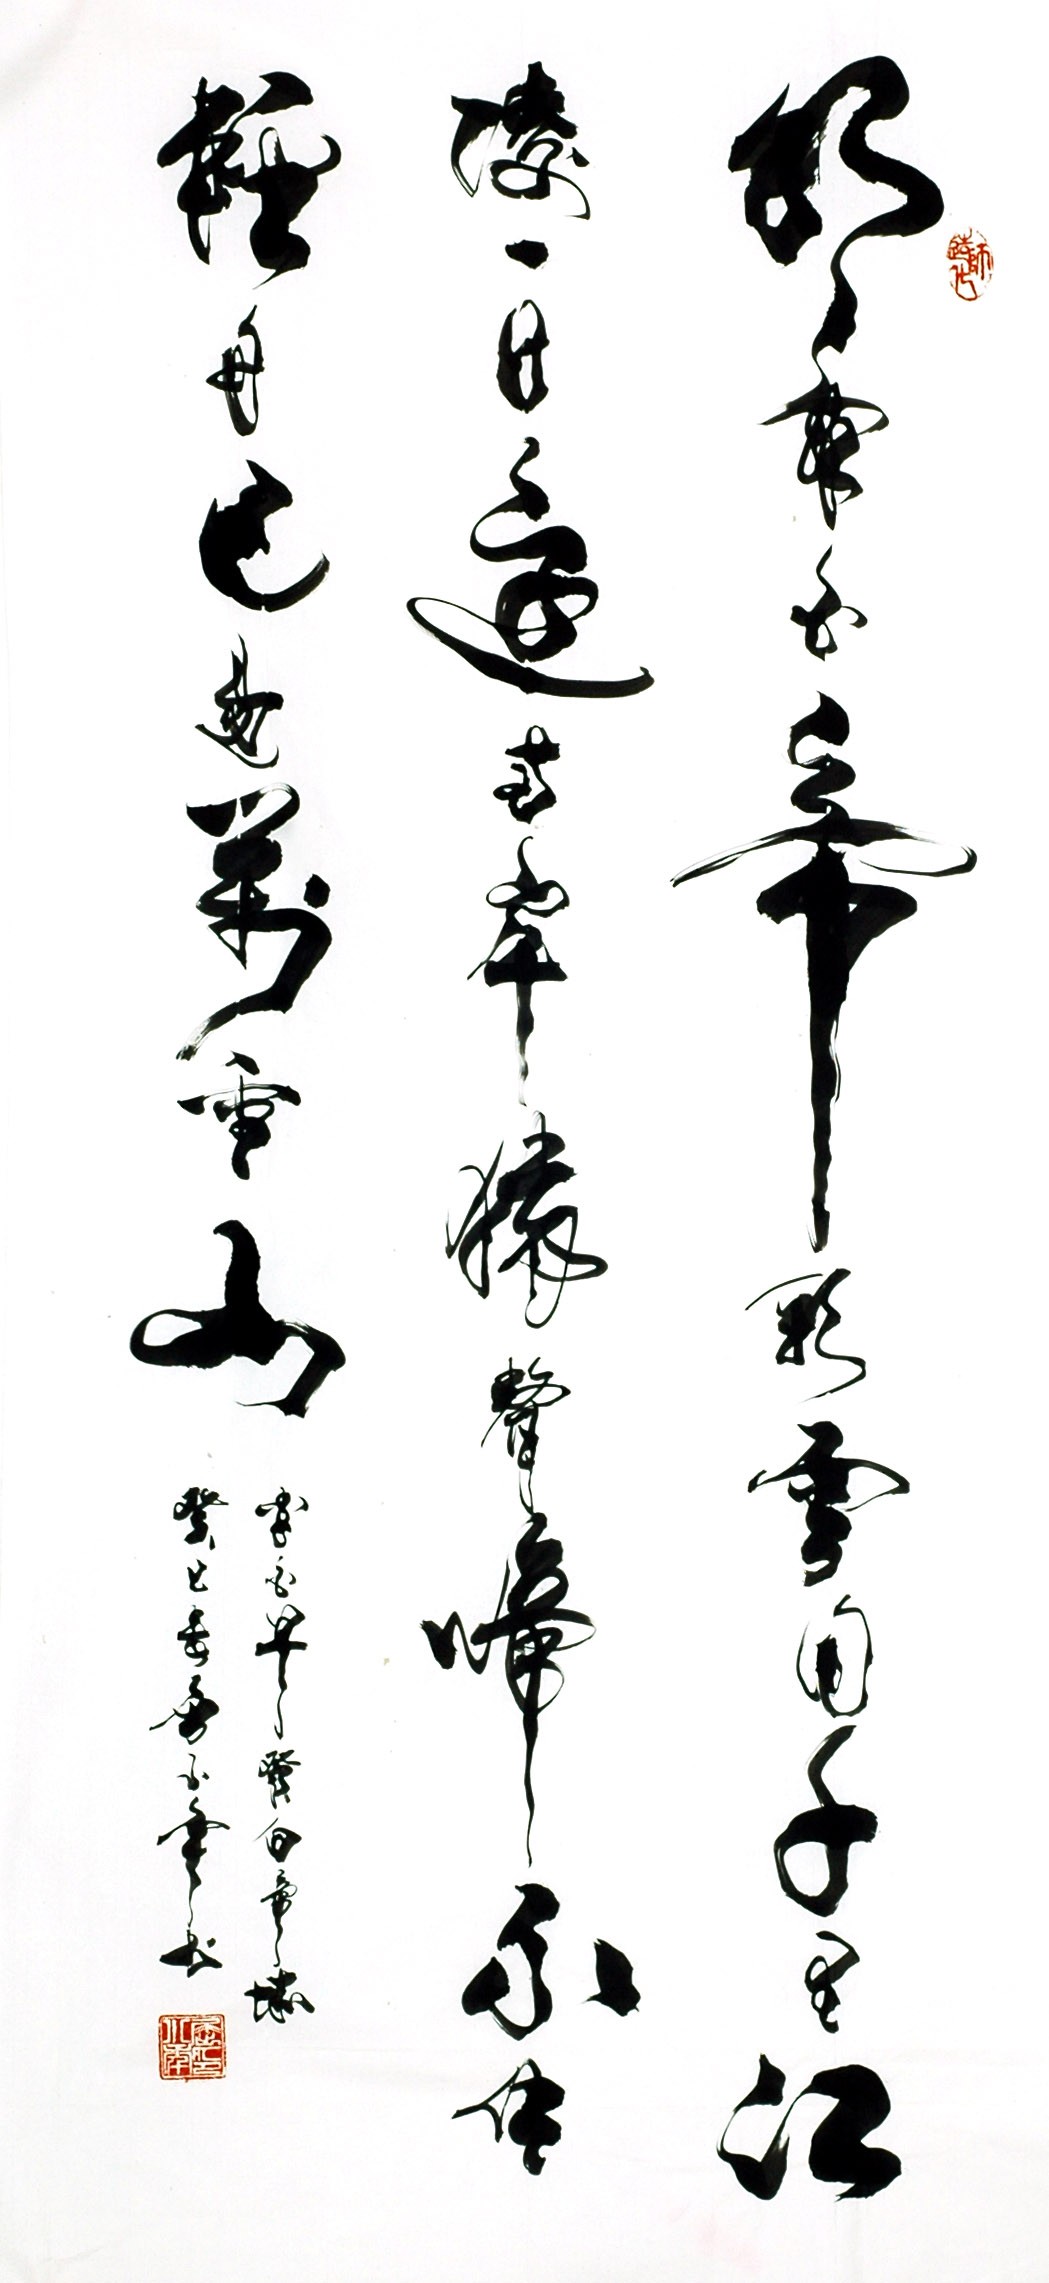 朝辭白帝彩雲間千里江
陵一日還兩岸猿聲啼不住
輕舟已過萬重山
李白早發白帝城
癸巳春小年書
師造化